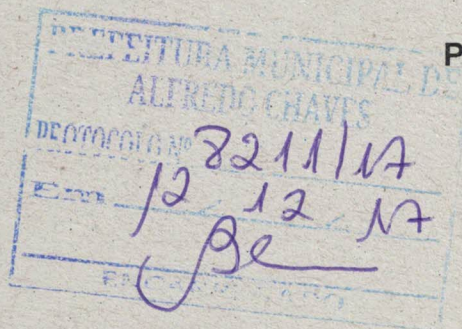 PREFEITURA MUNICIPAL DE
ALFREDO CHAVES
PROTOCOLO Nº 8211/17
Em 12 12 17
P